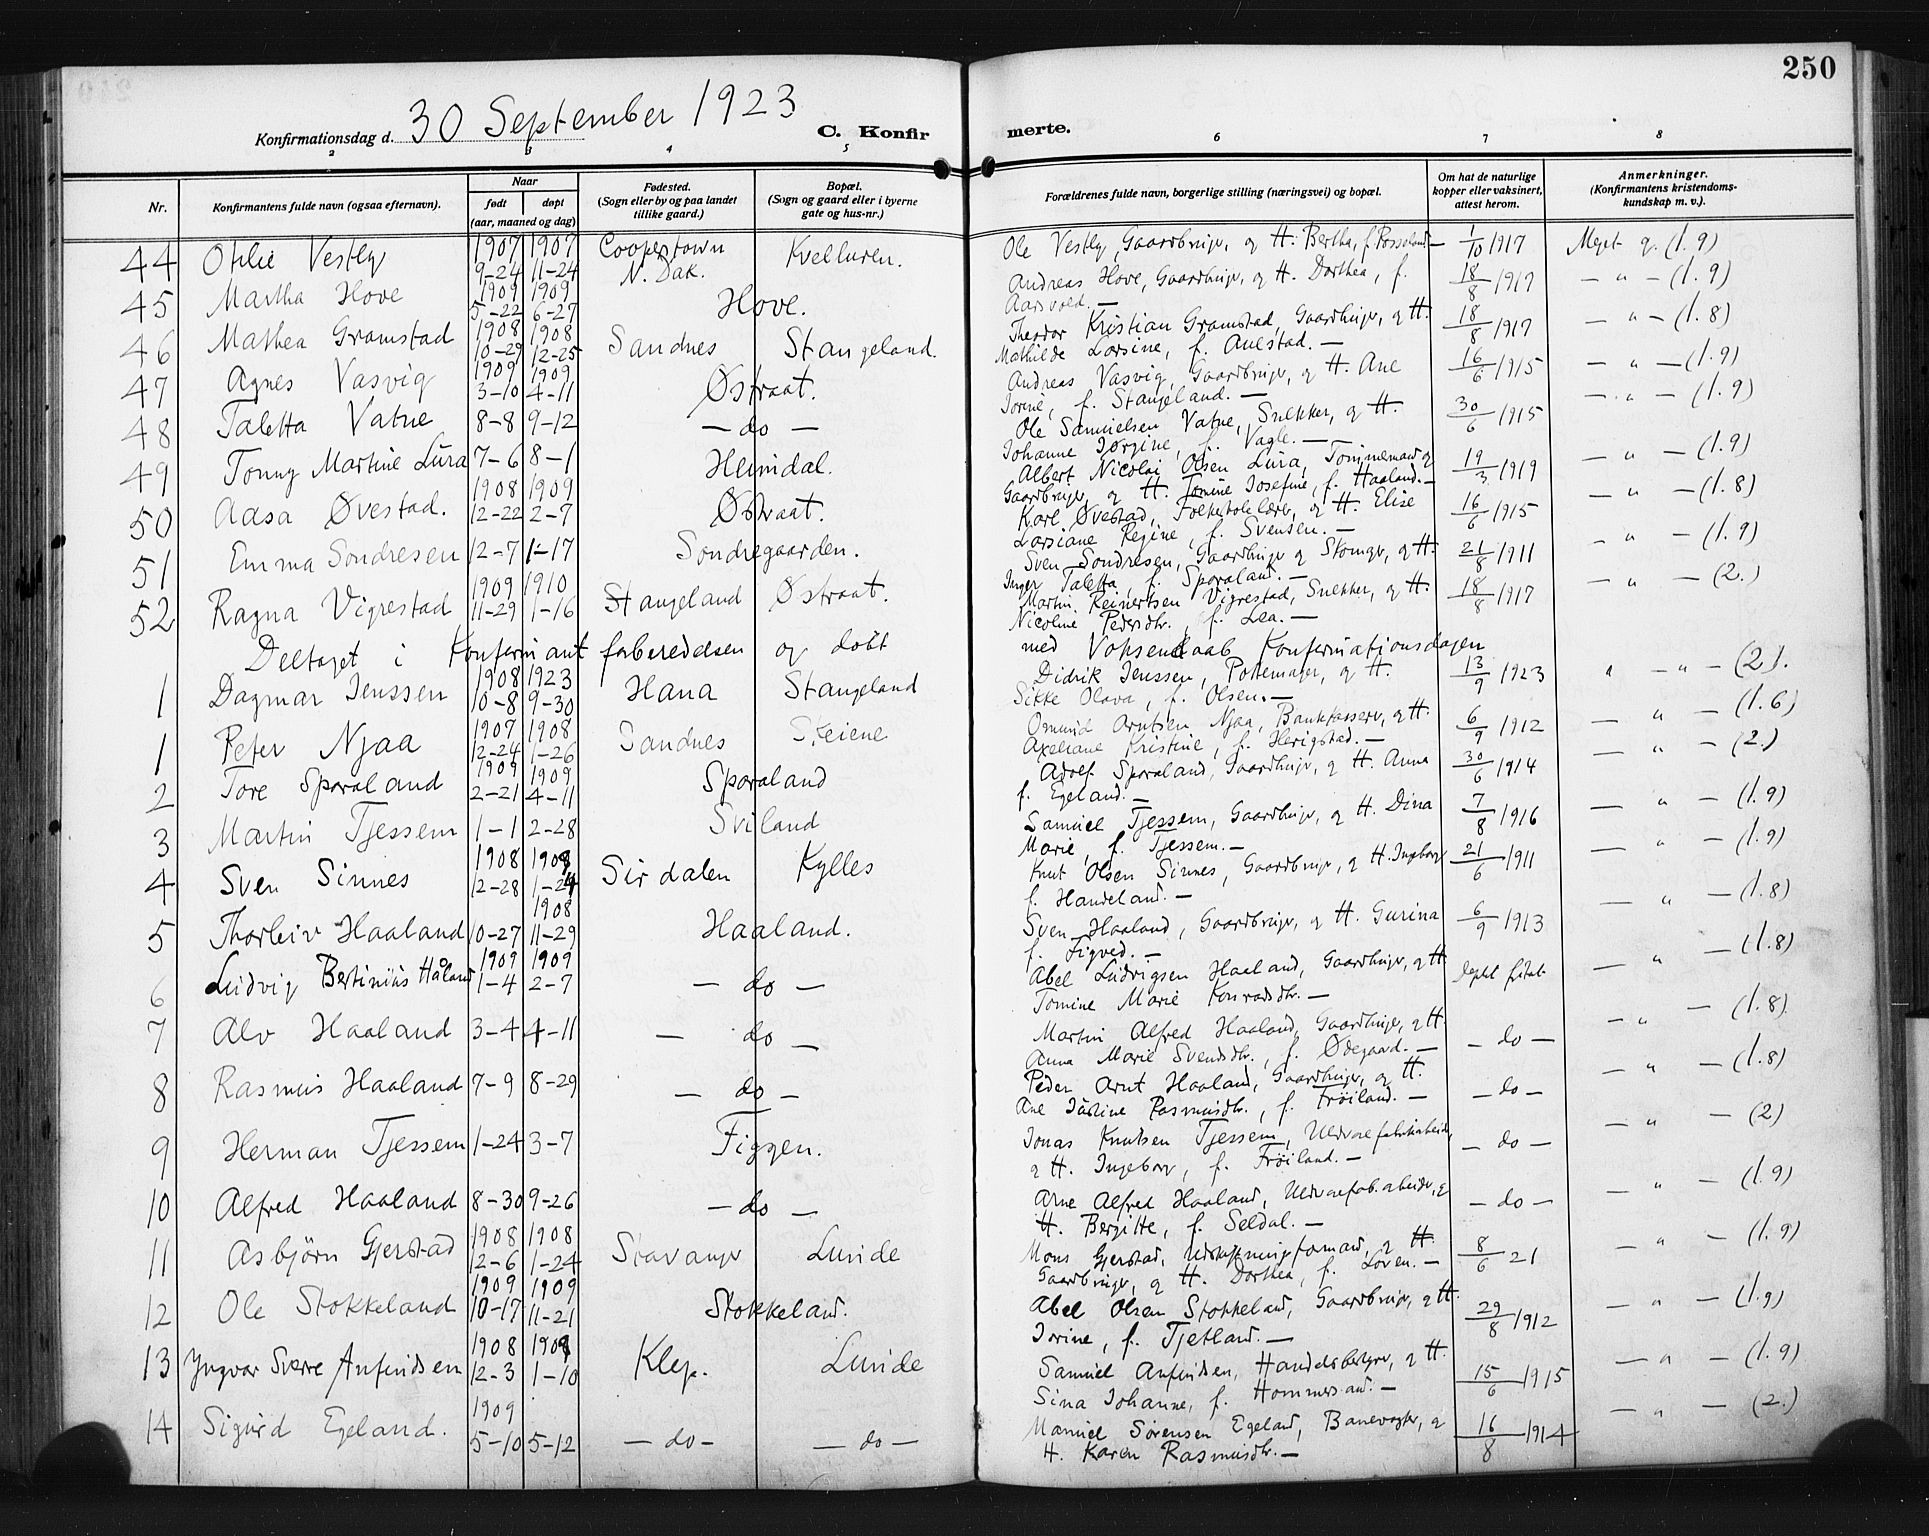 250
Konfirmationsdag d. 30 September 1923
C. Konfirmerte.
2 3 4 5 6 7 8
Nr.
Konfirmantens fulde navn (ogsaa efternavn).
Naar
født
døpt
(aar, maaned og dag)
Fødested.
(Sogn eller by og paa landet
tillike gaard.)
Bopæl.
(Sogn og gaard eller i byerne
gate og hus-nr.)
Forældrenes fulde navn, borgerlige stilling (næringsvei) og bopæl.
Om hat de naturlige
kopper eller vaksinert,
attest herom.
Anmerkninger.
(Konfirmantens kristendoms-
kundskap m. v.).
44 Otilie Vestly 1907 9-24 1907 11-24 Cooperstown N. Dak. Kvelluren. Ole Vestly, Gaardbruger, og H. Bertha, f. 1/10 1917 Meget g. (1.9)
45 Martha Hove 1909 5-22 1909 6-27 Hove. Andreas Hove, Gaardbruger, og H. Dorthea, f. Aarsvold.— 18/8 1917 — " — (1.9)
46 Mathea Gramstad 1908 10-29 1908 12-25 Sandnes Stangeland. Theodor Kristian Gramstad, Gaardbruger, og H. Mathilde Lorsine, f. Auestad.— 18/8 1917 — " — (1.8)
47 Agnes Vasvig 1909 3-10 1909 4-11 Østraat. Andreas Vasvig, Gaardbruger, og H. Ane Jorine, f. Stangeland.— 16/6 1915 — " — (1.9)
48 Taletta Vatne 8-8 9-12 — do — Ole Samuelsen Vatne, Snekker, og H. Johanne Jørgine, f. Vagle.— 30/6 1915 — " — (1.9)
49 Tonny Martine Lura 7-6 8-1 Heimdal. Albert Nicolai Olsen Lura, Tømmermand og Gaardbruger, og H. Tomine Josefine, f. Haaland.— 19/3 1919 — " — (1.9)
50 Aasa Øvestad. 1908 12-22 1909 2-7 Østraat. Karl Øvestad, Folkeskolelærer, og H. Elise Lorsiane Regine, f. Svensen.— 16/6 1915 — " — (1.8)
51 Emma Sondresen 12-7 1-17 Sondregaarden. Sven Sondresen, Gaardbruger og Stomgr, og H. Inger Taletta, f. Sporaland.— 21/8 1911 — " — (1.9)
52 Ragna Vigrestad 1909 11-29 1910 1-16 Stangeland Østraat. Martin Reinertsen Vigrestad, Snekker, og H. Nicoline Pedersdtr., f. Lea.— 18/8 1917 — " — (2.)
Deltaget i Konfirmantforberedelsen og døbt med Voksendaab Konfirmationsdagen
1 Dagmar Jenssen 1908 10-8 1923 9-30 Hana Stangeland Didrik Jenssen, Pottemager, og H. Sikke Olava, f. Olsen.— 13/9 1923 " — " — (2).
1 Peter Njaa 1907 12-24 1908 1-26 Sandnes Skeiene Omund Arntsen Njaa, Bankkasserer, og H. Axeliane Kristine, f. Herigstad.— 6/9 1912 — " — (1.6)
2 Tore Sporaland 1909 2-21 1909 4-11 Sporaland Adolf Sporaland, Gaardbruger, og H. Anna f. Egeland.— 30/6 1914 — " — (2.)
3 Martin Tjessem 1-1 2-28 Sviland Samuel Tjessem, Gaardbruger, og H. Dina Marie, f. Tjessem.— 7/8 1916 — " — (1.9)
4 Sven Sinnes 1908 12-28 1909 1-24 Sirdalen Kylles Knut Olsen Sinnes, Gaardbruger, og H. Ingeborg f. Handeland.— 21/6 1911 — " — (1.9)
5 Thorleiv Haaland 10-27 1908 11-29 Haaland. Sven Haaland, Gaardbruger, og H. Gurina f. Figved.— 6/9 1913 — " — (1.8)
6 Ludvig Bertinius Håland 1909 1-4 1909 2-7 — do — Abel Ludvigsen Haaland, Gaardbruger, og H. Tomine Marie Konradsdtr.— — " — (1.8)
7 Alv Haaland 3-4 4-11 — do — Martin Alfred Haaland, Gaardbruger, og H. Anna Marie Svendsdtr., f. Ødegaard.— — do — — " — (1.8)
8 Rasmus Haaland 7-9 8-29 — do — Peder Arnt Haaland, Gaardbruger, og H. Ane Justine Rasmusdtr., f. Frøiland.— — do — — " — (1.8)
9 Herman Tjessem 1-24 3-7 Figgen. Jonas Knutsen Tjessem, Uldvarefabrikarbeider, og H. Ingeborg, f. Frøiland.— — do — — " — (2)
10 Alfred Haaland 8-30 9-26 — do — Arne Alfred Haaland, Uldvarefab.arbeider, og H. Bergitte, f. Seldal.— — do — — " — (1.9)
11 Asbjörn Gjerstad 1908 12-6 1908 1-24 Stavanger Lunde Mons Gjerstad, Udskiftningsformand, og H. Gaardbruger, og H. Dorthea, f. Loven.— 8/6 21 — " — (1.9)
12 Ole Stokkeland 1909 10-17 1909 11-21 Stokkeland. Abel Olsen Stokkeland, Gaardbruger, og H. Jorine, f. Tjetland.— 29/8 1912 — " — (1.9)
13 Yngvar Sverre Anfindsen 1908 12-3 1909 1-10 Klep. Lunde Samuel Anfindsen, Handelsbestyrer, og H. Sina Johanne, f. Hommersand.— 15/6 1915 — " — (1.9)
14 Sigurd Egeland. 1909 5-10 5-12 — do — — do — Mauriel Sørensen Egeland, Banevogter, og H. Karen Rasmusdtr.— 16/8 1914 — " — (2.)